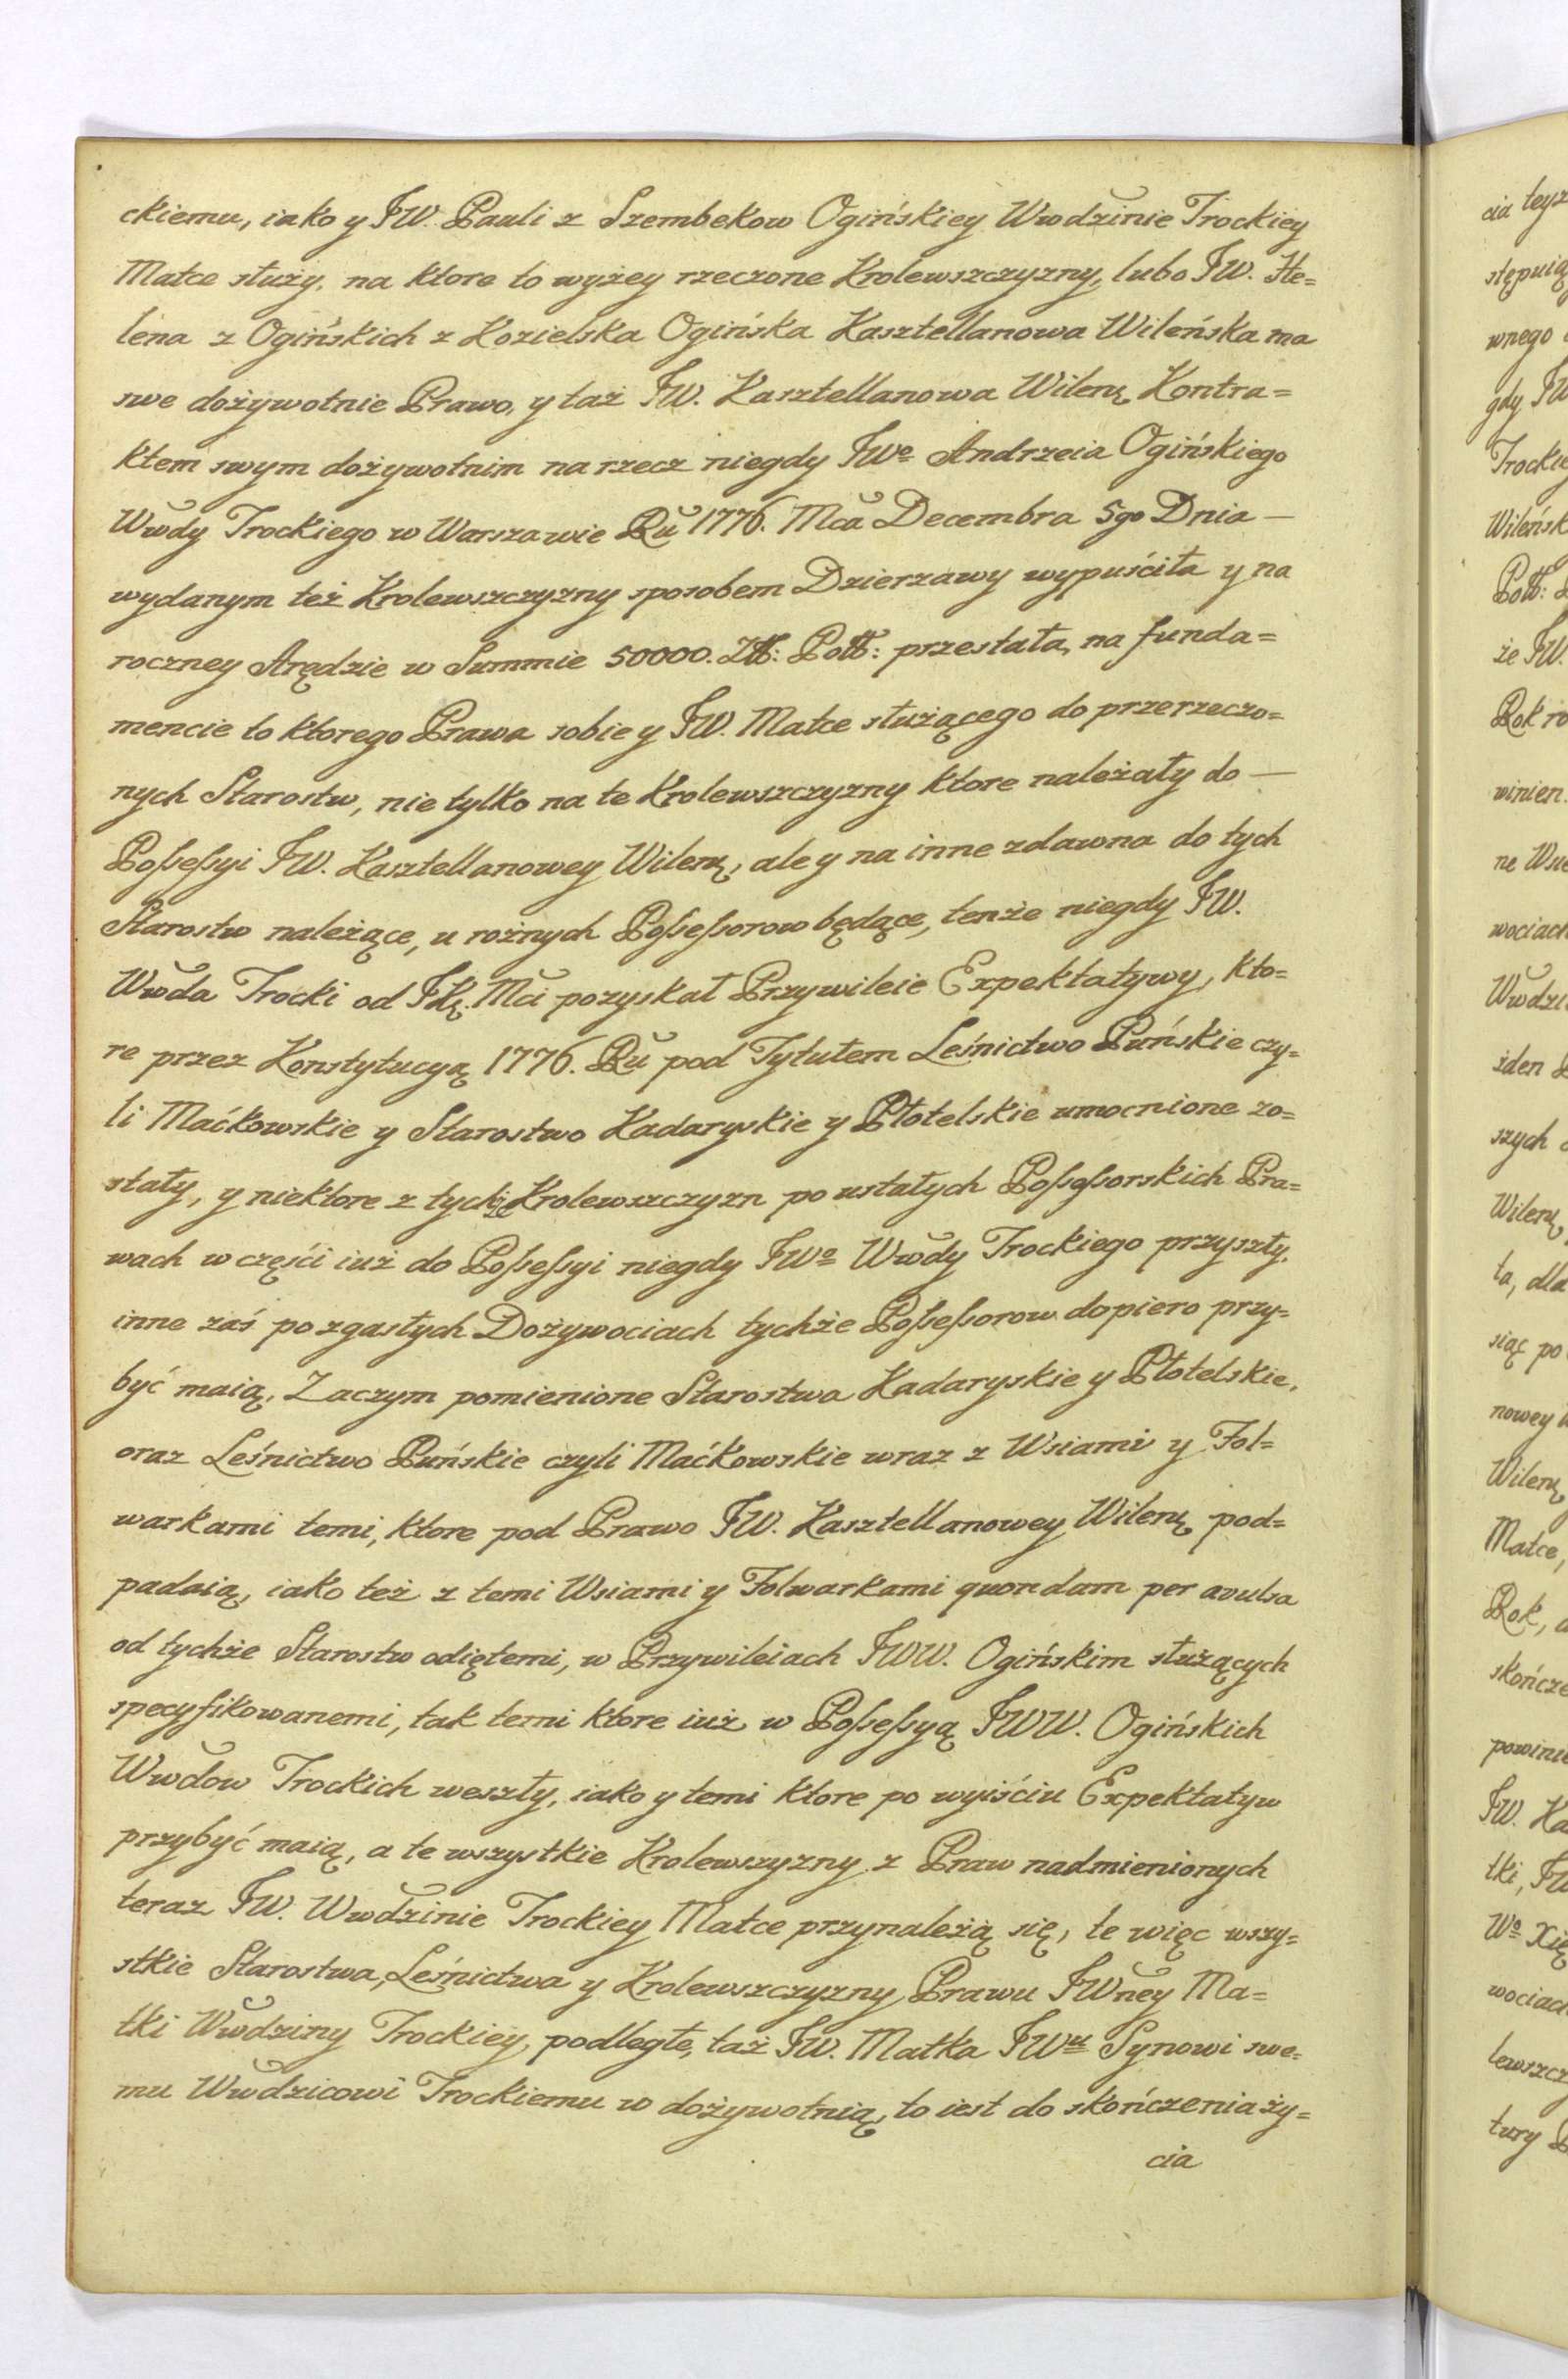 ckiemu, iako y JW. Pauli z Szembekow Ogińskiey Wwdzinie Trockiey
Matce służy, na ktore to wyżey rzeczone Krolewszczyzny, lubo JW. He=
lena z Ogińskich z Kozielska Ogińska Kasztellanowa Wileńska ma
swe dożywotnie Prawo, y taż JW. Kasztellanowa Wileńę Kontra=
ktem swym dożywotnim na rzecz niegdy JWo Andrzeia Ogińskiego
Wwdy Trockiego w Warszawie Ru 1776. Mca Decembra 5go Dnia —
wydanym też Krolewszczyzny sposobem Dzierzawy wypuściła y na
roczney Arędzie w Summie 50000. Złł: Poll: przestała, na funda=
mencie to ktorego Prawa sobie y JW. Matce służącego do przerzeczo=
nych Starostw, nie tylko na te Krolewszczyzny ktore należały do —
Possessyi JW. Kasztellanowey Wilenę, ale y na inne zdawna do tych
Starostw należące, u rożnych Possessorow będące, tenże niegdy JW.
Wwda Trocki od JKę. Mci pozyskał Przywileie Expektatywy, kto=
re przez Konstytucyą 1776. Ru pod Tytułem Leśnictwo Puńskie czy=
li Maćkowskie y Starostwo Kadaryskie y Płotelskie umocnione zo=
stały, y niektore z tychże Krolewszczyzn po ustałych Possessorskich Pra=
wach w częśći iuż do Possessyi niegdy JWo Wwdy Trockiego przyszły,
inne zaś po zgasłych Dożywociach tychże Possessorow dopiero przy=
być maią, Zaczym pomienione Starostwa Kadaryskie y Płotelskie,
oraz Leśnictwo Puńskie czyli Maćkowskie wraz z Wsiami y Fol=
warkami temi, ktore pod Prawo JW. Kasztellanowey Wilenę pod=
padaią, iako też z temi Wsiami y Folwarkami quondam per avulsa
od tychże Starostw odiętemi, w Przywileiach JWW. Ogińskim służących
specyfikowanemi, tak temi ktore iuż w Possessyą JWW. Ogińskich
Wwdow Trockich weszły, iako y temi ktore po wyiściu Expektatyw
przybyć maią, a te wszystkie Krolewszyzny z Praw nadmienionych
teraz JW. Wwdzinie Trockiey Matce przynależą się, te więc wszy=
stkie Starostwa, Leśnictwa y Krolewszczyzny Prawu JWney Ma=
tki Wwdziny Trockiey, podległe, taż JW. Matka JWu Synowi swe=
mu Wwdzicowi Trockiemu w dożywotnią, to iest do skończenia ży=
cia
cia teyż
stępuią
wnego
gdy JW
Trockie
Wileńsk
Poll:
że JW.
Rok ro
winien
ne Wsie
wociach
Wwdzi
żden
szych
Wilenę
ta, dla
siąc po
nowey
Wilenę
Matce,
Rok, a
skończe
powinie
JW. Ka
tki, JW
Wo Xię
wociach
lewszcz
tury